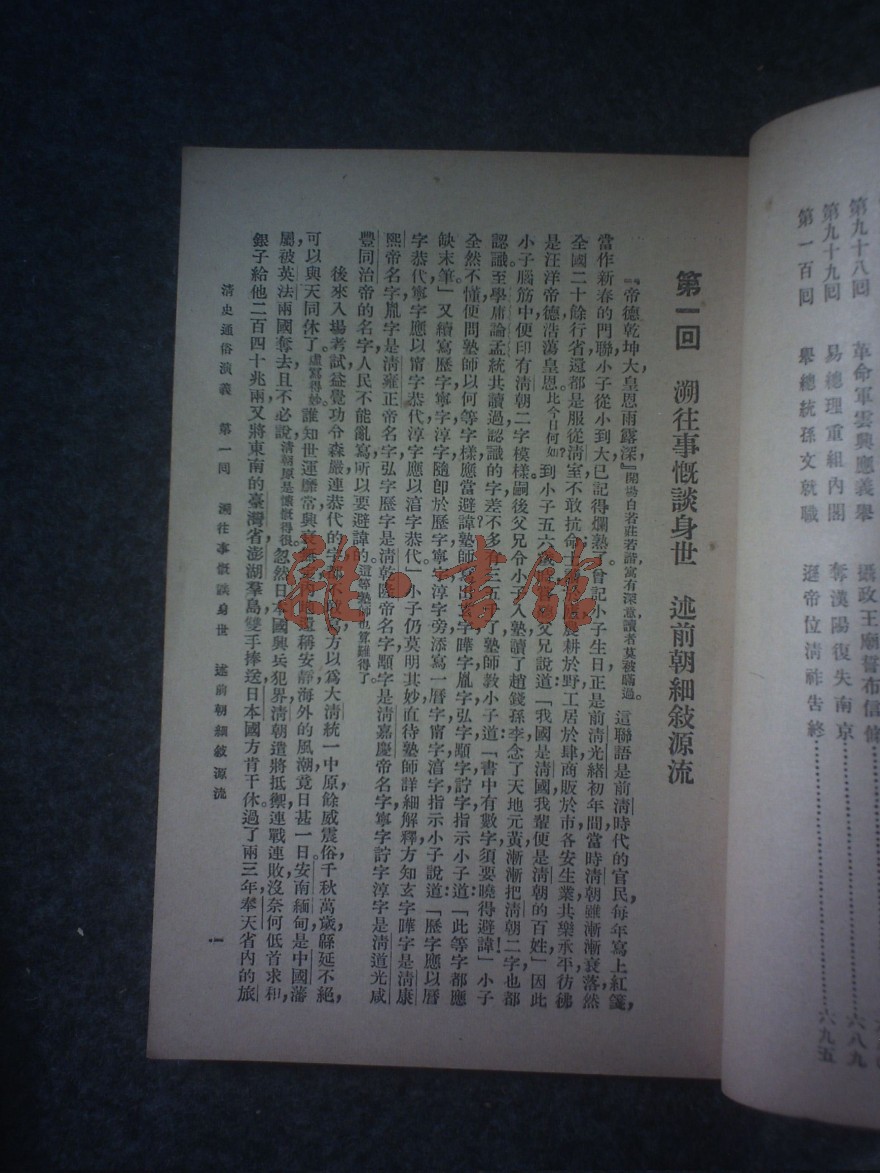 第九十八回　革命軍雲興應義舉　攝政王廟誓布信條
第九十九回　易總理重組內閣　奪漢陽復失南京……六八九
第一百回　舉總統孫文就職　遜帝位淸祚告終……六九五
第一回　溯往事慨談身世　述前朝細敍源流
『帝德乾坤大，皇恩雨露深。』開場自若莊若諧，寓有深意，讀者莫被瞞過。這聯語是前淸時代的官民，每年寫上紅箋，
當作新春的門聯，小子從小到大，已記得爛熟了。曾記小子生日，正是前淸光緒初年間，當時淸朝雖漸漸衰落，然
全國二十餘行省，還都是服從淸室，不敢抗命，士農耕於野，工居於肆，商販於市，各安生業，共樂承平，彷彿
是汪洋帝德，浩蕩皇恩。比今日何如？到小子五六歲，父兄說道：「我國是淸國，我輩便是淸朝的百姓，」因此
小子腦筋中，便印有淸朝二字模樣。嗣後父兄令小子入塾，讀了趙錢孫李，念了天地元黃，漸漸把淸朝二字，也都
認識。至學庸論孟統共讀過，認識的字，差不多有三五了，塾師教小子道：「書中有數字，須要曉得避諱！」小子
全然不懂，便問塾師以何等字樣，應當避諱？塾師寫出字曄字胤字弘字顒字詝字，指示小子道：「此等字都應
缺末筆，」又續寫歷字寧字淳字，隨卽於歷字寧字淳字旁，添寫一曆字甯字湻字，指示小子說道：「歷字應以曆
字恭代，寧字應以甯字恭代，淳字應以湻字恭代，」小子仍莫明其妙，直待塾師詳細解釋，方知玄字曄字，是淸康
熙帝名字，胤字是淸雍正帝名字，弘字歷字，是淸乾隆帝名字，顒字是淸嘉慶帝名字，寧字詝字淳字，是淸道光咸
豐同治帝的名字，人民不能亂寫，所以要避諱的。這等塾師也算難得了。
後來入場考試，益覺功令森嚴，連恭代的字都寫，方以爲大淸統一中原，餘威震俗，千秋萬歲，緜延不絕，
可以與天同休了。虛寫得妙。誰知世運靡常，興衰道稱安靜，海外的風潮，竟日甚一日，安南緬甸，是中國藩
屬，被英法兩國奪去，且不必說；淸朝原是慷慨得很。忽然日本國興兵犯界，淸朝遣將抵禦，連戰連敗，沒奈何低首求和，
銀子給他二百四十兆兩，又將東南的臺灣省澎湖羣島，雙手捧送，日本國方肯干休。過了兩三年，奉天省內的旅
淸史通俗演義　第一回　溯往事慨談身世　述前朝細敍源流
一
雜·書館